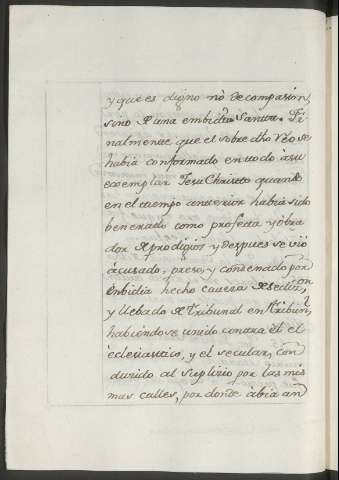 y que es digno nò de compasion,
sino de una embidia Santa. Fi
nalmente que el sobre dho Réo se
habia conformado en todo a su
exemplar Jesu Christo quando
en el tiempo anterior habia sido
benerado como profeta y obra
dor de prodigios y despues se vió
acusado, preso, y condenado por
enbidia hecho cavera de sedicion,
y llebado de Tribunal en Tribunl,
habiendose unido contra èl el
eclesiastico, y el secular, con
ducido al suplizio por las mis
mas calles, por donde abia an